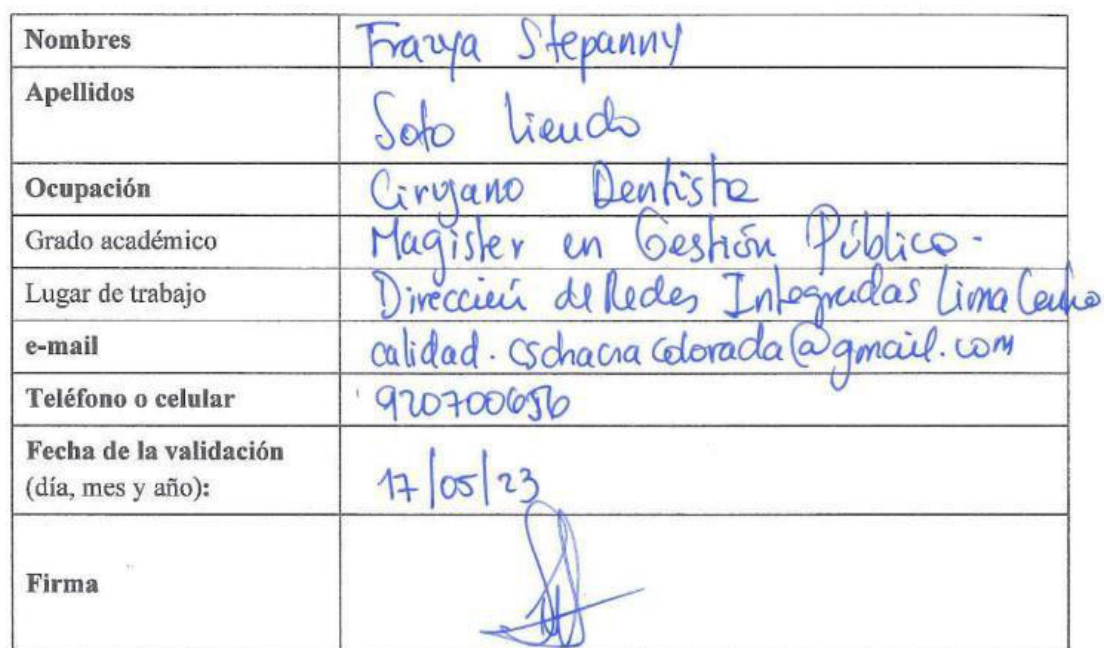 Nombres Frazya Stepanny
Apellidos
Soto Liendo
Ocupación Cirujano Dentista
Grado académico Magister en Gestión Público.
Lugar de trabajo Dirección de Redes Integradas Lima Centro
e-mail calidad.cschacracolorada@gmail.com
Teléfono o celular 920700656
Fecha de la validación
(día, mes y año): 17/05/23
Firma